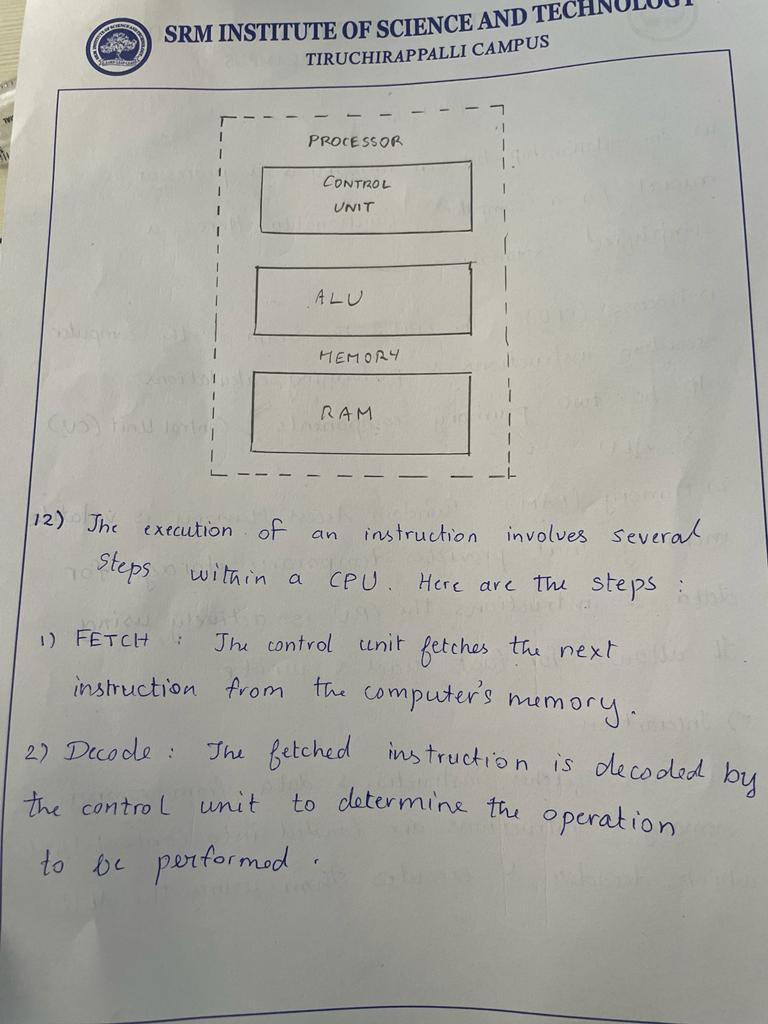 SRM INSTITUTE OF SCIENCE AND TECHNOLOGY
TIRUCHIRAPPALLI CAMPUS
PROCESSOR
CONTROL
UNIT
ALU
MEMORY
RAM
12) The execution of an instruction involves several
steps within a CPU. Here are the steps :
1) FETCH : The control unit fetches the next
instruction from the computer's memory.
2) Decode : The fetched instruction is decoded by
the control unit to determine the operation
to be performed.